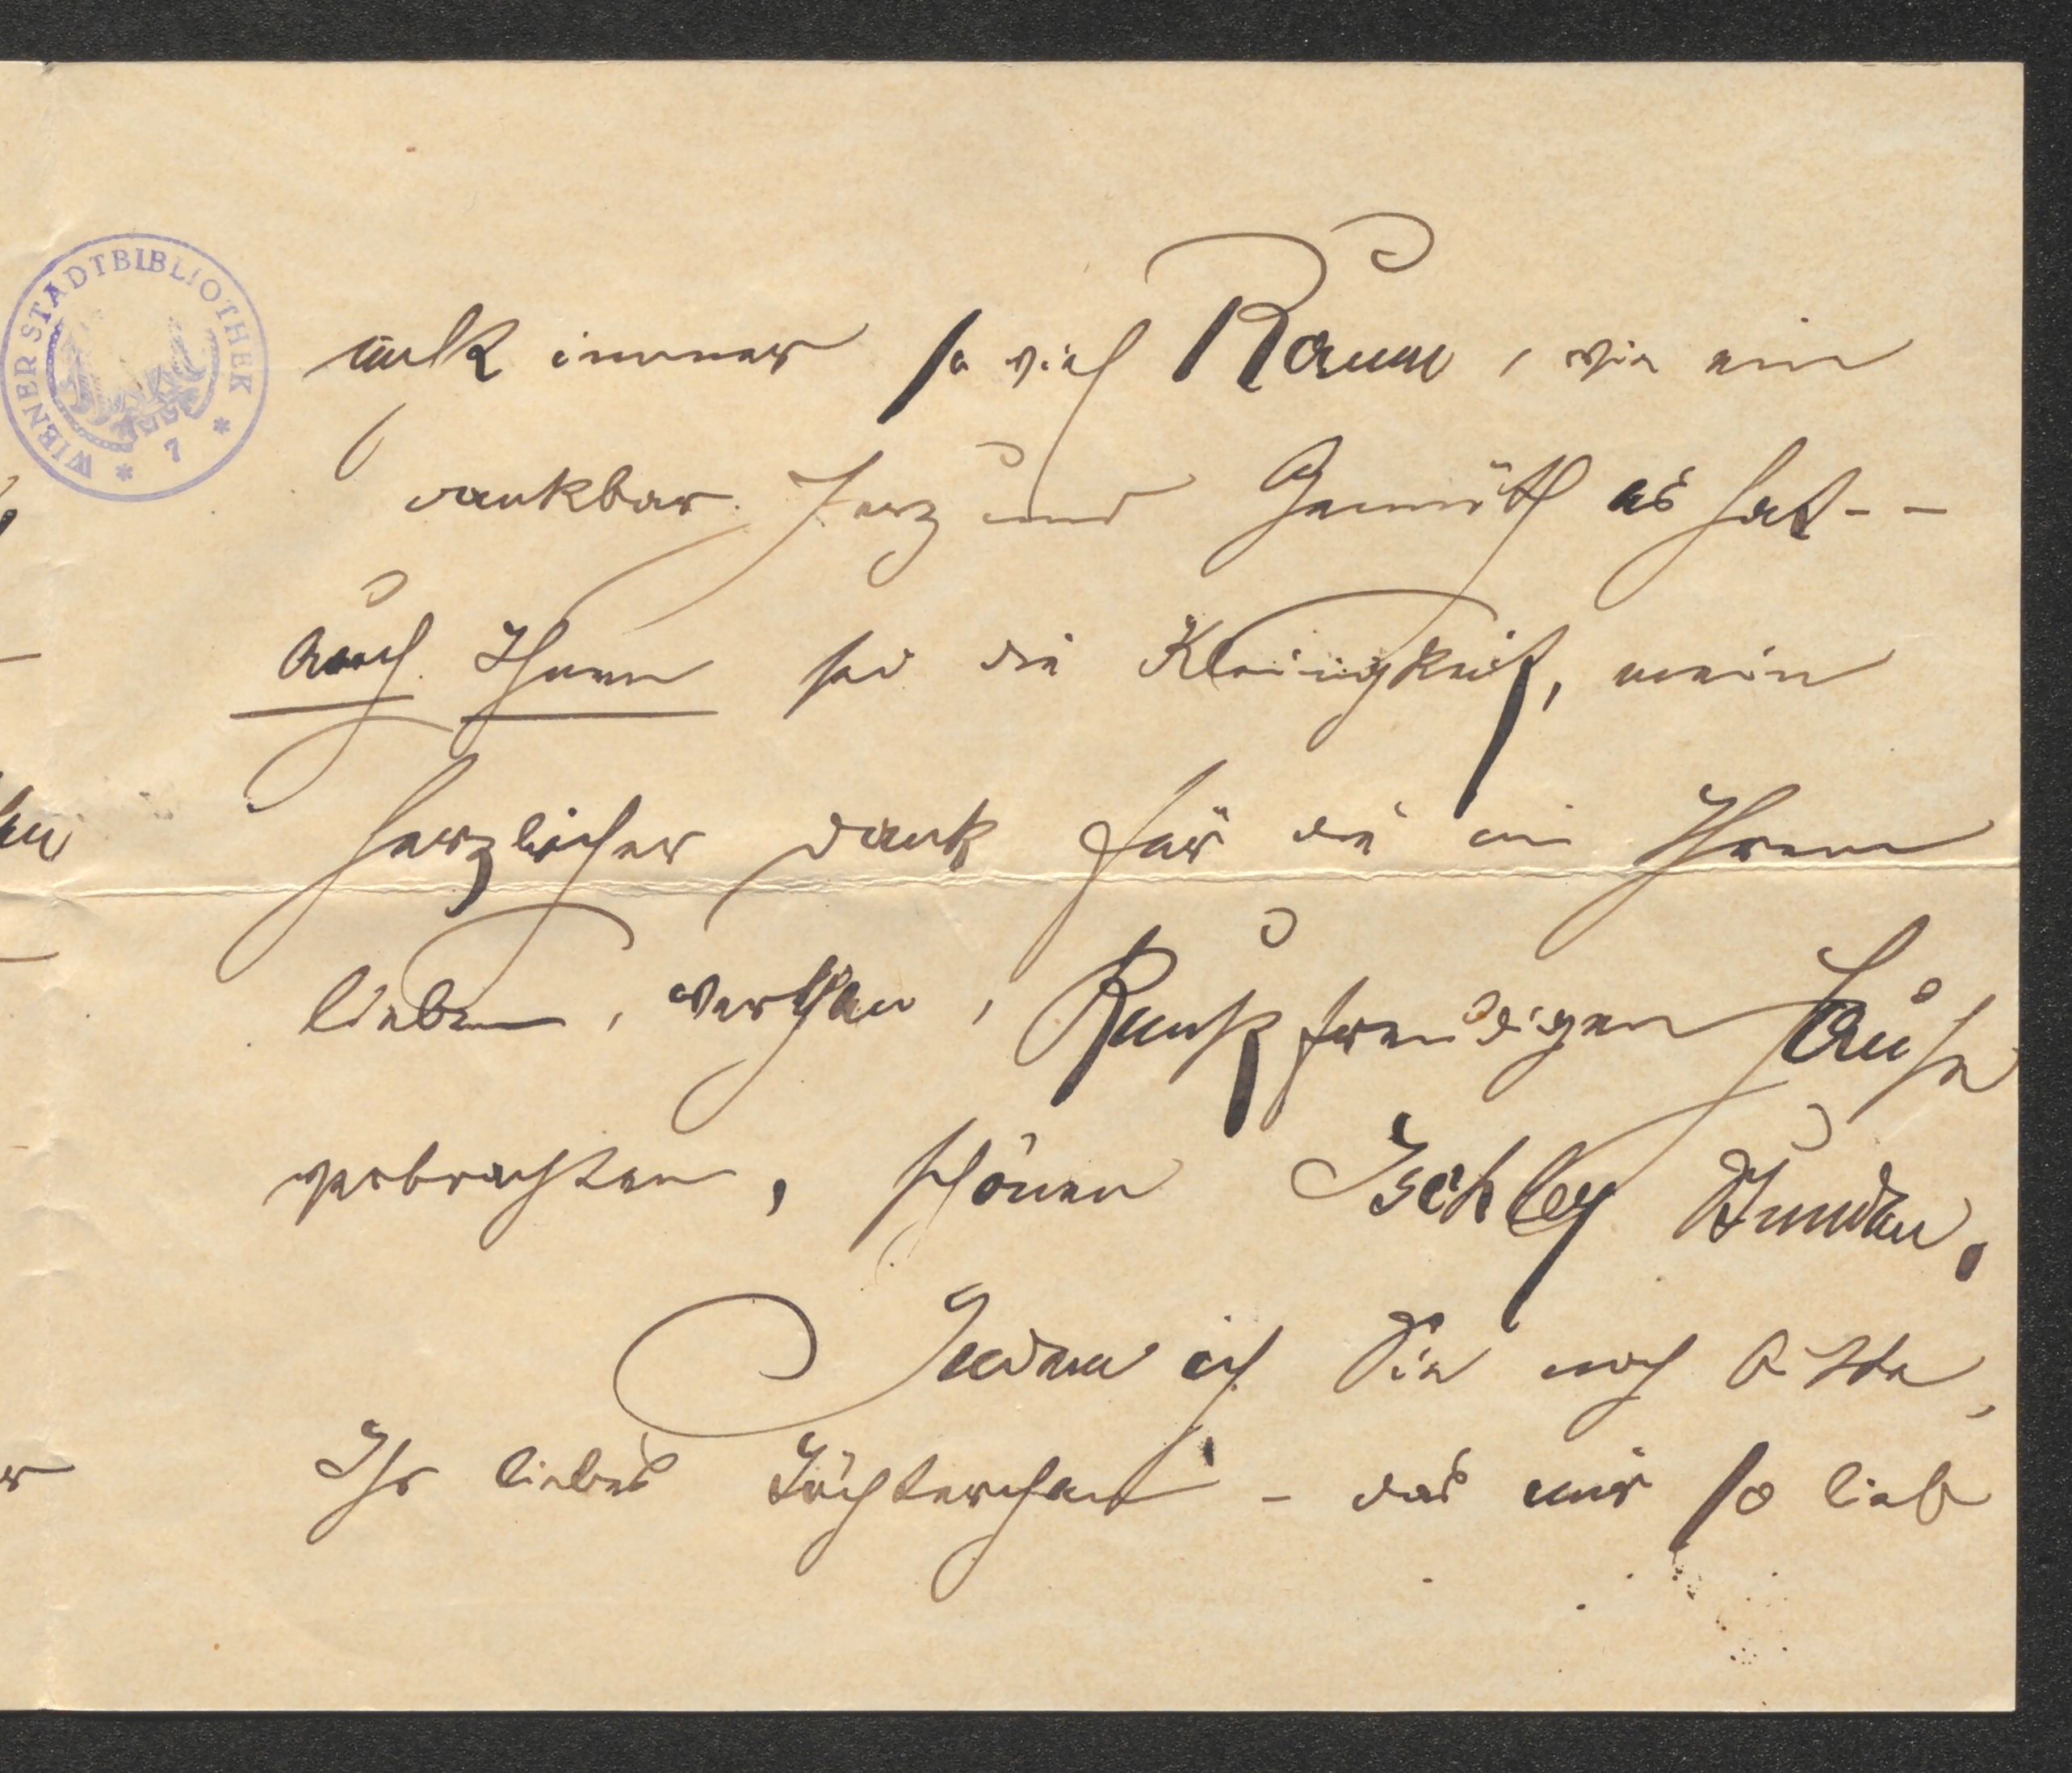 WIENER STADTBIBLIOTHEK * 7 *
immer so viel Raum, wie ein
dankbar Herz und Gemüth es hat--
Auch Ihnen sei die Kleinigkeit, mein
herzlicher Dank für die in Ihrem
lieben, werthen, Kunstfreudigen Hause
verbrachten, schönen Ischler Stunden.
Indem ich Sie noch bitte,
Ihr liebes Töchterchen - das mir so lieb